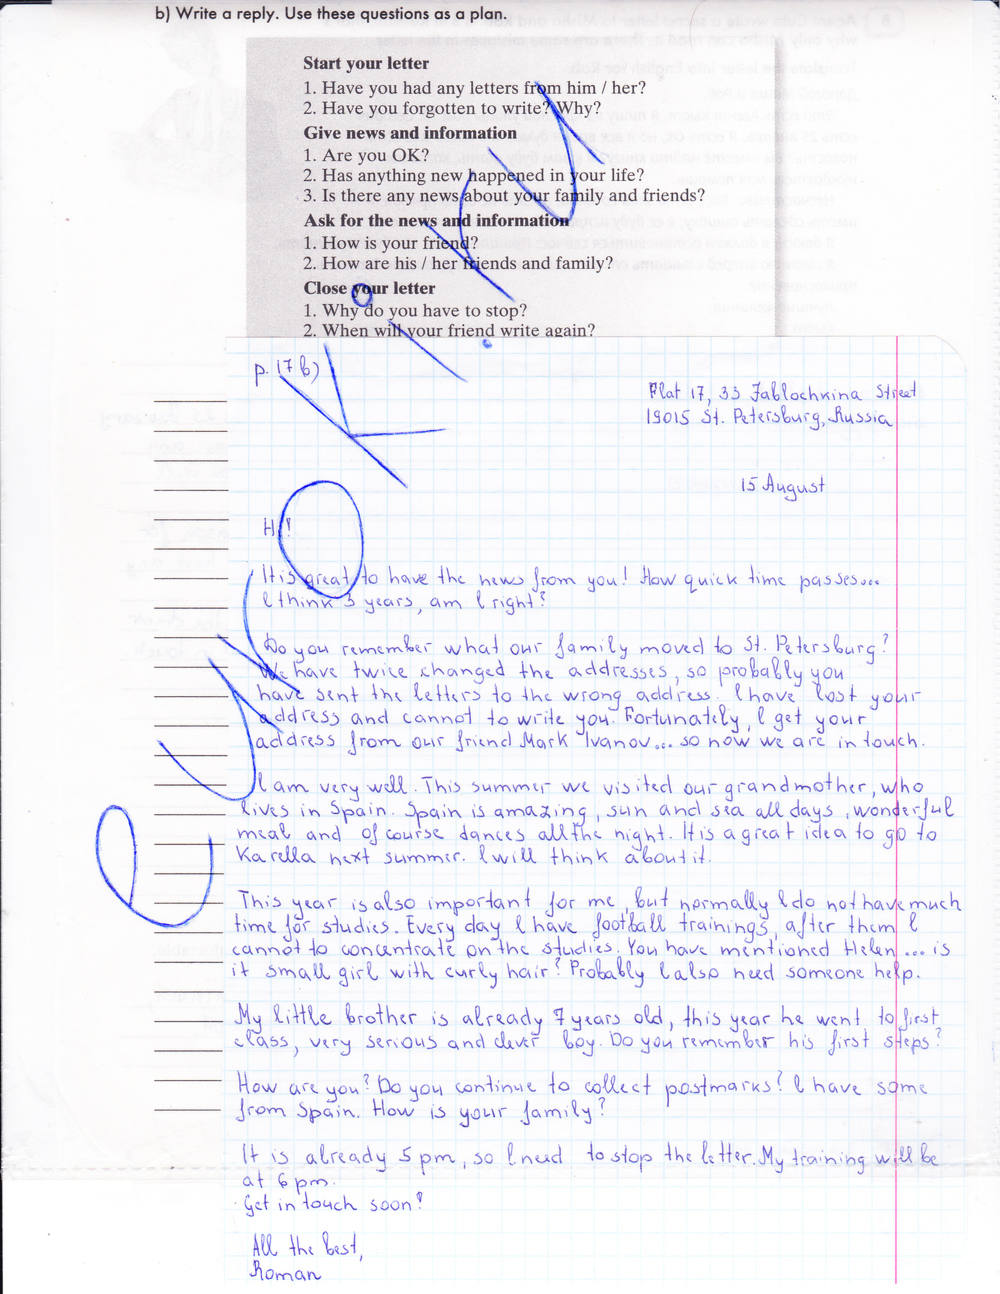 b) Write a reply. Use these questions as a plan.
Start your letter
1. Have you had any letters from him / her?
2. Have you forgotten to write? Why?
Give news and information
1. Are you OK?
2. Has anything new happened in your life?
3. Is there any news about your family and friends?
Ask for the news and information
1. How is your friend?
2. How are his / her friends and family?
Close your letter
1. Why do you have to stop?
2. When will your friend write again?
p. 17 b)
Flat 17, 33 Jablochkina Street
19015 St. Petersburg, Russia
15 August
Hi!
It is great to have the news from you! How quick time passes...
I think 3 years, am I right?
Do you remember what our family moved to St. Petersburg?
We have twice changed the addresses, so probably you
have sent the letters to the wrong address. I have lost your
address and cannot to write you. Fortunately, I get your
address from our friend Mark Ivanov... so now we are in touch.
I am very well. This summer we visited our grandmother, who
lives in Spain. Spain is amazing, sun and sea all days, wonderful
meal and of course dances all the night. It is a great idea to go to
Karelia next summer. I will think about it.
This year is also important for me, but normally I do not have much
time for studies. Every day I have football trainings, after them I
cannot to concentrate on the studies. You have mentioned Helen... is
it small girl with curly hair? Probably I also need someone help.
My little brother is already 7 years old, this year he went to first
class, very serious and clever boy. Do you remember his first steps?
How are you? Do you continue to collect postmarks? I have some
from Spain. How is your family?
It is already 5 pm, so I need to stop the letter. My training will be
at 6 pm.
Get in touch soon!
All the best,
Roman
euroki.ru